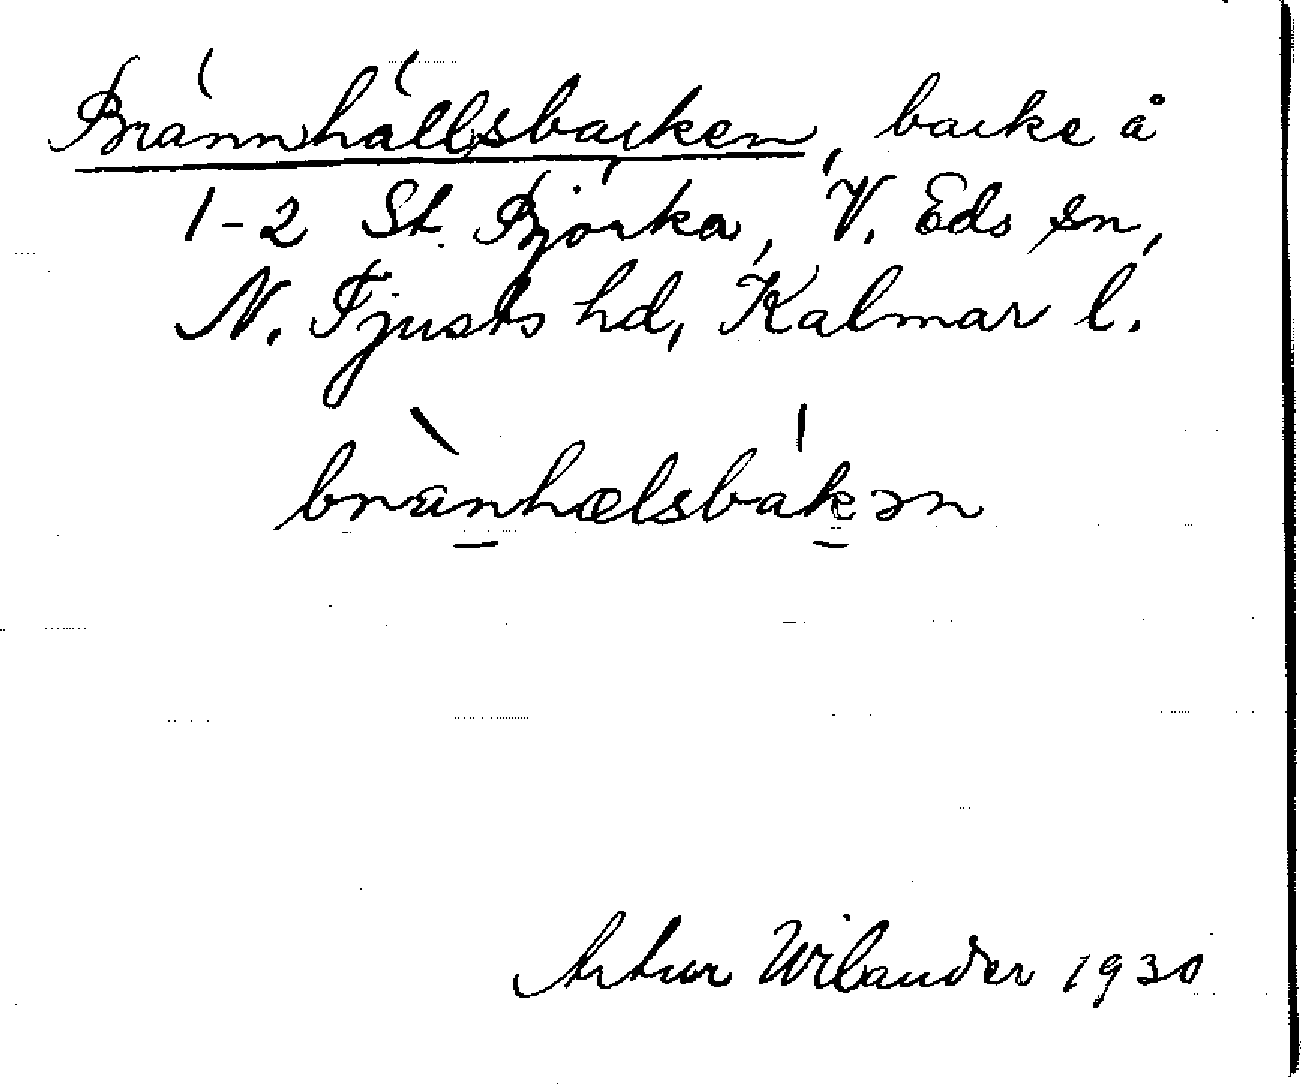 Brännhällsbacken, backe å
1-2 St. Björka, V. Eds sn,
N. Tjusts hd, Kalmar l.
brànhælsbákən
Artur Wilander 1930